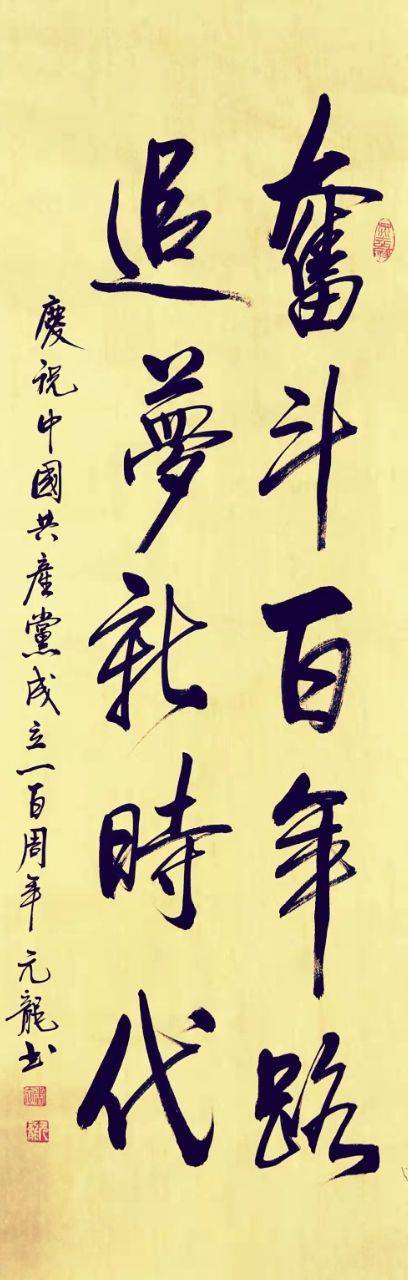 奮斗百年路
追夢新時代
慶祝中國共產黨成立一百周年 元龍书